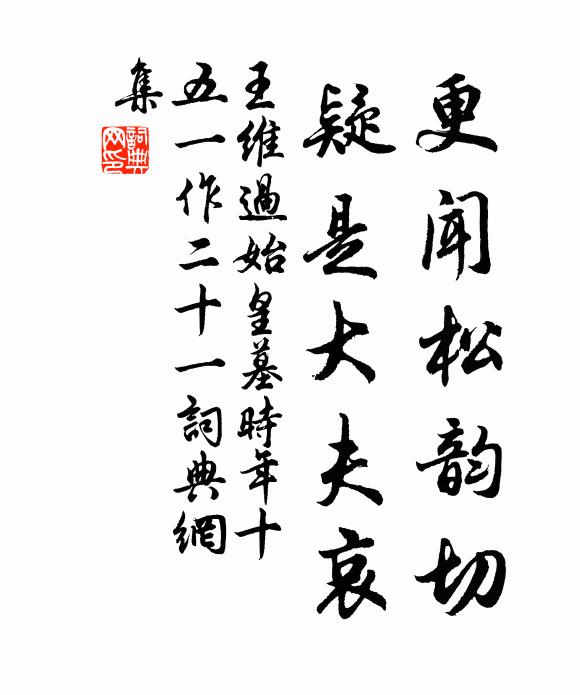 更闻松韵切
疑是大夫哀
王維過始皇墓時年十
五一作二十一詞典網
集
詞典网印